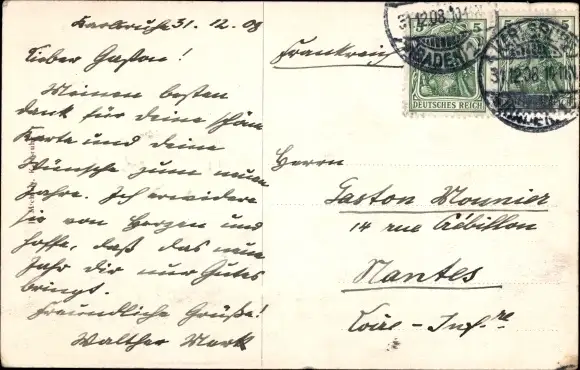 Karlsruhe 31. 12. 08
Lieber Gaston!
Meinen besten
dank für deine schöne
Karte und deine
Wünsche zum neuen
Jahre. Ich erwidere
sie von Herzen und
hoffe, daß das neue
Jahr dir nur Gutes
bringt.
Freundliche Grüße!
Walther Merk
Frankreich
5
5
DEUTSCHES REICH
KARLSRUHE
(BADEN)
31.12.08
Herrn
Gaston Mounier
14 rue Crébillon
Nantes
Loire - Inf.re